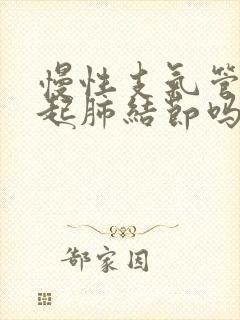 慢性支氣管
起肺結節嗎
郜家因